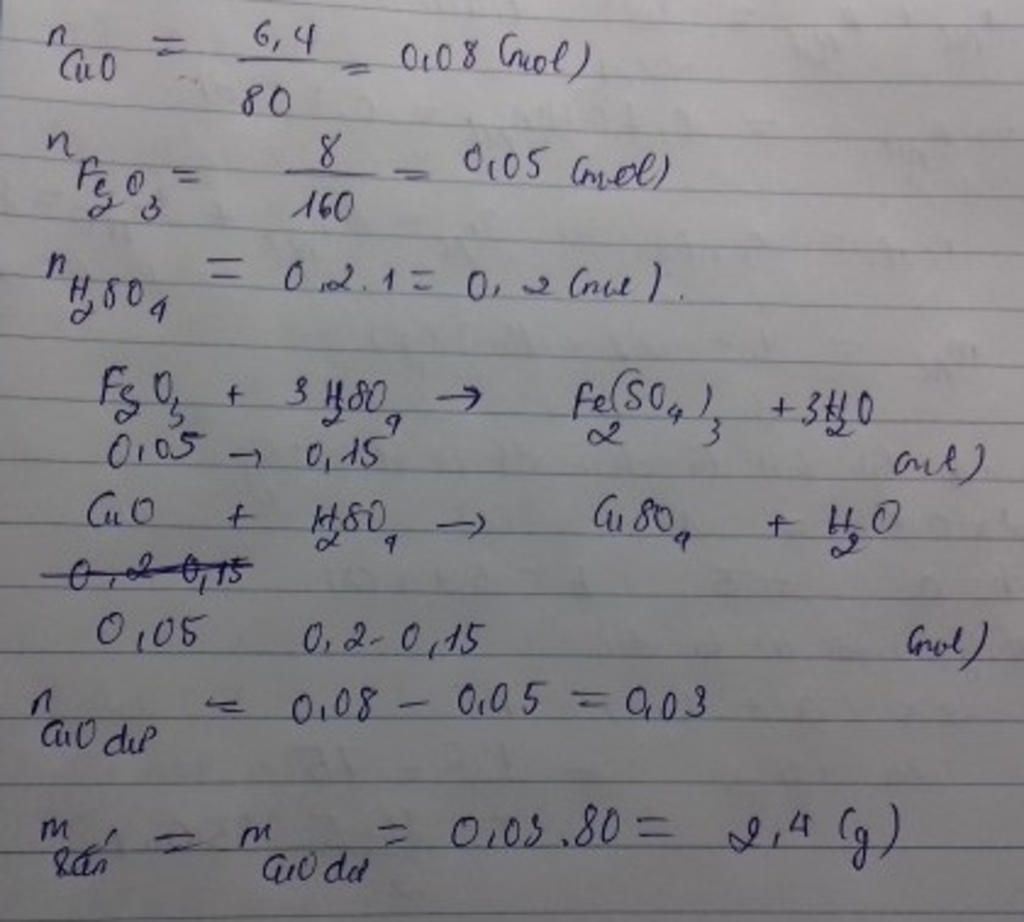 n CuO = 6,4 / 80 = 0,08 (mol)
n Fe2O3 = 8 / 160 = 0,05 (mol)
n H2SO4 = 0,2.1 = 0,2 (mol).
Fe2O3 + 3H2SO4 → Fe2(SO4)3 + 3H2O
0,05 → 0,15 (mol)
CuO + H2SO4 → CuSO4 + H2O
0,2-0,15
0,05 0,2-0,15 (mol)
n CuO dư = 0,08 - 0,05 = 0,03
m rắn = m CuO dư = 0,03.80 = 2,4 (g)